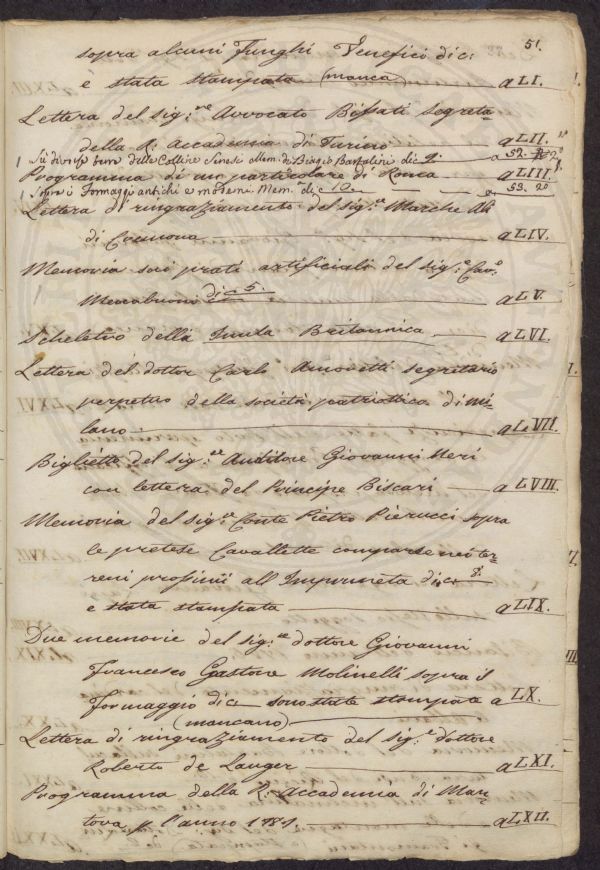 51.
sopra alcuni Funghi Venefici di c:
è stata stampata (manca) a LI.
Lettera del sig:re Avvocato Bissati Segreta-
della R: Accademia di Turino a LII.
Su diverse terre delle Colline Sinesi Mem. di Biagio Bartalini di c 2. a 52. 2°
Programma di un particolare di Ronca a LIII.
Sopra i Formaggi antichi e moderni Mem. di c 10 a 53. 2°
Lettera di ringraziamento del sig:re Marche Ali
di Cremona a LIV.
Memoria sui prati artificiali del sig:e Cav:
di c 5. a LV.
Scheletro della Inula Britannica a LVI.
Lettera del dottor Carlo Amoretti segretario
perpetuo della società patriottica di Mi-
lano a LVII.
Biglietto del sig:re Auditore Giovanni Neri
con lettera del Principe Biscari a LVIII.
Memoria del sig:re Conte Pietro Pierucci sopra
le pretese Cavallette comparse nei ter-
reni prossimi all Impruneta di c. 8.
e stata stampata a LIX.
Due memorie del sig:re dottore Giovanni
Francesco Gastone Molinelli sopra il
Formaggio di c sono state stampate a LX.
(mancano)
Lettera di ringraziamento del sig:e dottore
Roberto de Lauger a LXI.
Programma della R: Accademia di Man-
tova p l'anno 1781. a LXII.